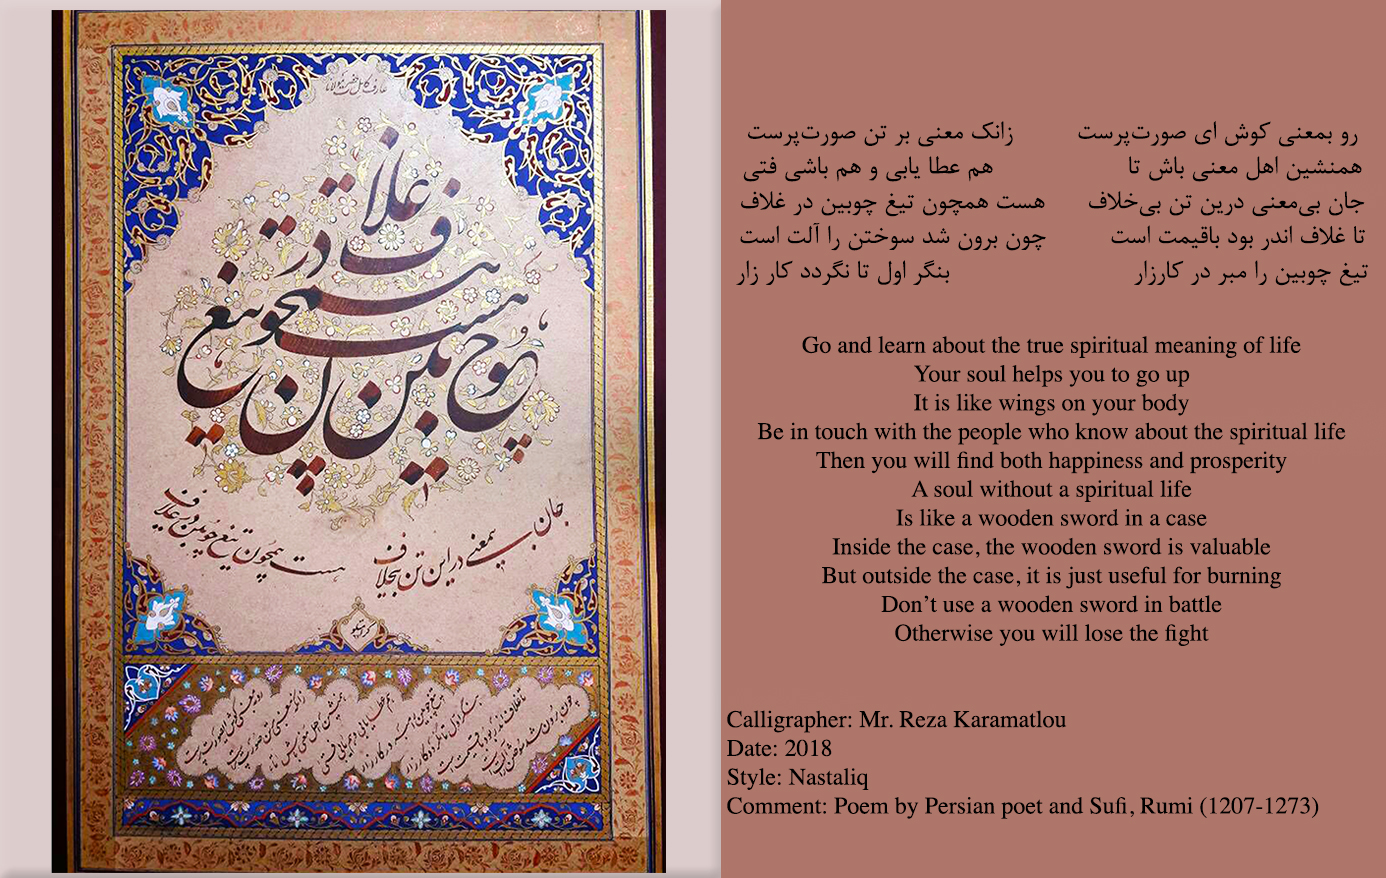 عارف کامل حضرت مولانا
جان بیمعنی در این تن بیخلاف
هست همچون تیغ چوبین در غلاف
رو بمعنی کوش ای صورت‌پرست زانک معنی بر تن صورت‌پرست
همنشین اهل معنی باش تا هم عطا یابی و هم باشی فتی
جان بی‌معنی درین تن بی‌خلاف هست همچون تیغ چوبین در غلاف
تا غلاف اندر بود باقیمت است چون برون شد سوختن را آلت است
تیغ چوبین را مبر در کارزار بنگر اول تا نگردد کار زار
Go and learn about the true spiritual meaning of life
Your soul helps you to go up
It is like wings on your body
Be in touch with the people who know about the spiritual life
Then you will find both happiness and prosperity
A soul without a spiritual life
Is like a wooden sword in a case
Inside the case, the wooden sword is valuable
But outside the case, it is just useful for burning
Don’t use a wooden sword in battle
Otherwise you will lose the fight
Calligrapher: Mr. Reza Karamatlou
Date: 2018
Style: Nastaliq
Comment: Poem by Persian poet and Sufi, Rumi (1207-1273)